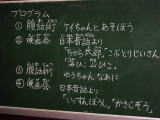 プログラム
① 腹話術 ケイちゃんとあそぼう
② 映画会 日本昔話より
「ちから太郎」「こぶとりじいさん」
③ 腹話術 ゆうちゃんなあに
④ 映画会 日本昔話より
「いっすんぼうし」「かさじぞう」